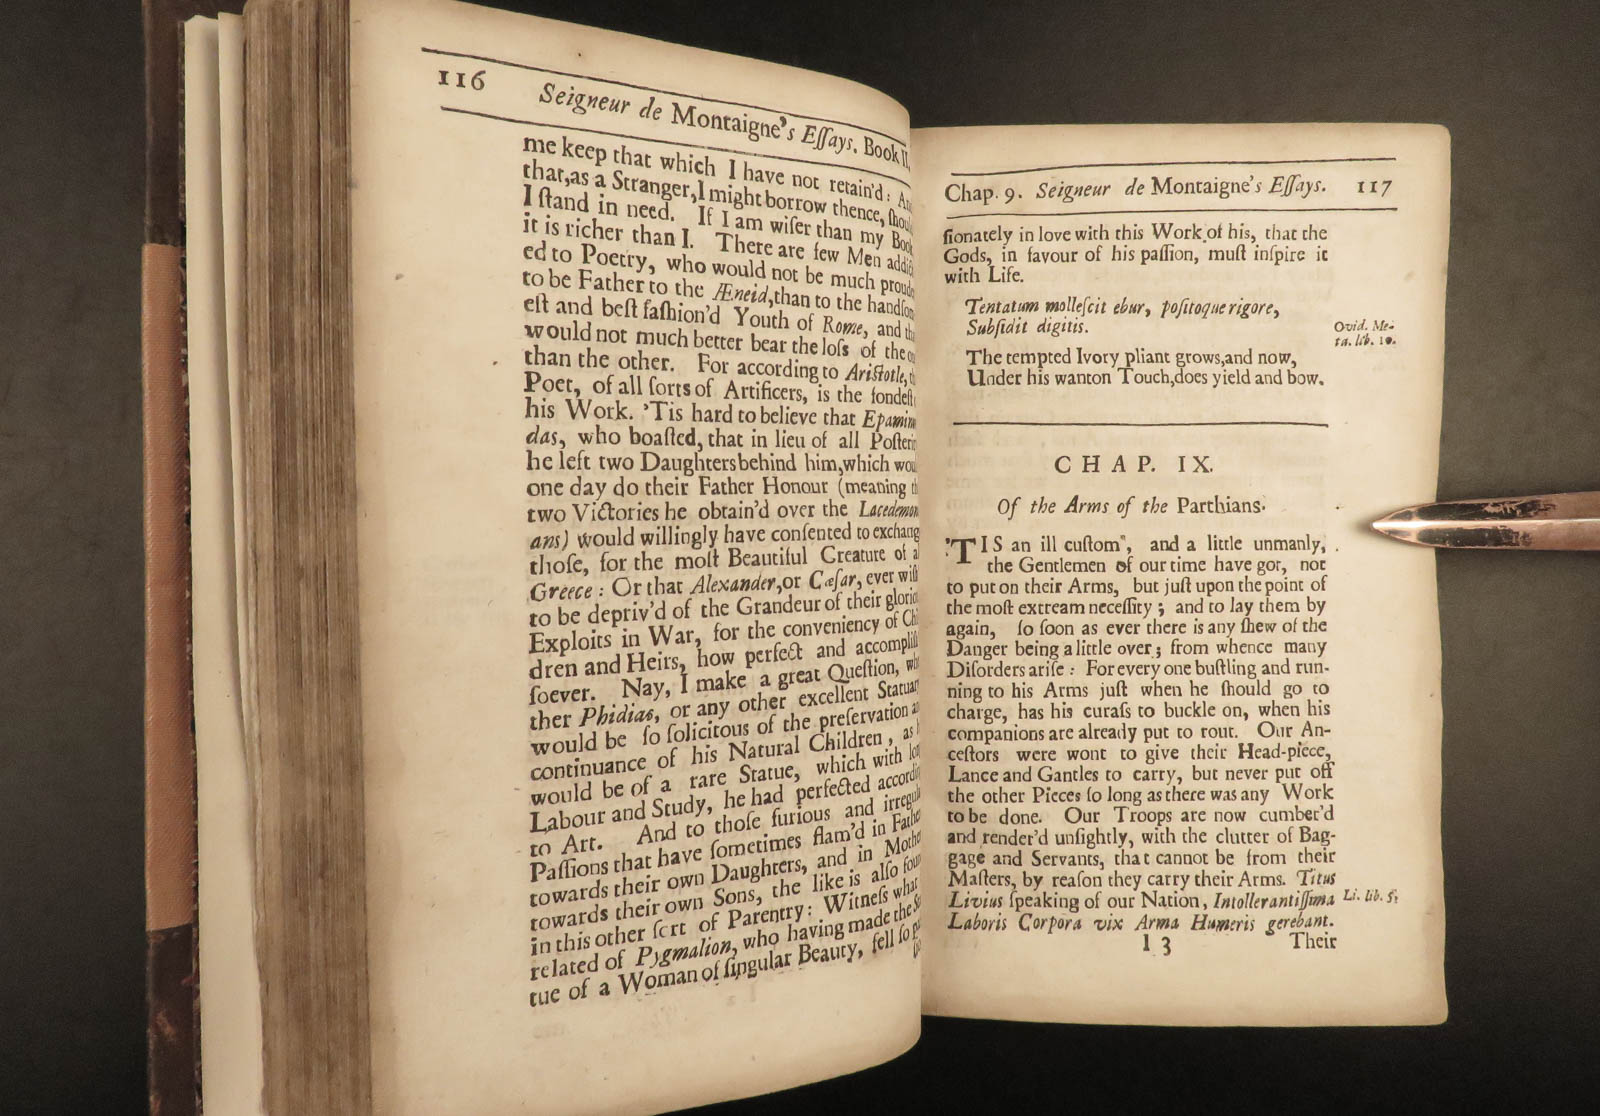 116 Seigneur de Montaigne's Eſſays. Book II.
me keep that which I have not retain'd: An
that, as a Stranger, I might borrow thence, ſhou
I ſtand in need. If I am wiſer than my Book
it is richer than I. There are few Men addi
ed to Poetry, who would not be much proude
to be Father to the Æneid, than to the handſom
eſt and beſt faſhion'd Youth of Rome, and th
would not much better bear the loſs of the o
than the other. For according to Ariſtotle, th
Poet, of all ſorts of Artificers, is the fondeſt
his Work. 'Tis hard to believe that Epamin
das, who boaſted, that in lieu of all Poſteri
he left two Daughters behind him, which wou
one day do their Father Honour (meaning th
two Victories he obtain'd over the Lacedemon
ans) would willingly have conſented to exchang
thoſe, for the moſt Beautiful Creature of a
Greece: Or that Alexander, or Cæſar, ever wiſh
to be depriv'd of the Grandeur of their glorio
Exploits in War, for the conveniency of Chi
dren and Heirs, how perfect and accompliſ
ſoever. Nay, I make a great Queſtion, whe
ther Phidias, or any other excellent Statuar
would be ſo ſolicitous of the preſervation a
continuance of his Natural Children, as h
would be of a rare Statue, which with lon
Labour and Study, he had perfected accordin
to Art. And to thoſe furious and irregul
Paſſions that have ſometimes flam'd in Fathe
towards their own Daughters, and in Mothe
towards their own Sons, the like is alſo foun
in this other ſort of Parentry: Witneſs what
related of Pygmalion, who having made the Sta
tue of a Woman of ſingular Beauty, fell ſo pa
Chap. 9. Seigneur de Montaigne's Eſſays. 117
ſionately in love with this Work of his, that the
Gods, in favour of his paſſion, muſt inſpire it
with Life.
Tentatum molleſcit ebur, poſitoque rigore,
Subſidit digitis.
Ovid. Me-
ta. lib. 10.
The tempted Ivory pliant grows, and now,
Under his wanton Touch, does yield and bow.
CHAP. IX.
Of the Arms of the Parthians.
'TIS an ill cuſtom, and a little unmanly,
the Gentlemen of our time have got, not
to put on their Arms, but juſt upon the point of
the moſt extream neceſſity; and to lay them by
again, ſo ſoon as ever there is any ſhew of the
Danger being a little over; from whence many
Diſorders ariſe: For every one buſtling and run-
ning to his Arms juſt when he ſhould go to
charge, has his curaſs to buckle on, when his
companions are already put to rout. Our An-
ceſtors were wont to give their Head-piece,
Lance and Gantles to carry, but never put off
the other Pieces ſo long as there was any Work
to be done. Our Troops are now cumber'd
and render'd unſightly, with the clutter of Bag-
gage and Servants, that cannot be from their
Maſters, by reaſon they carry their Arms. Titus
Livius ſpeaking of our Nation, Intollerantiſſima
Li. lib. 5.
Laboris Corpora vix Arma Humeris gerebant.
I 3 Their